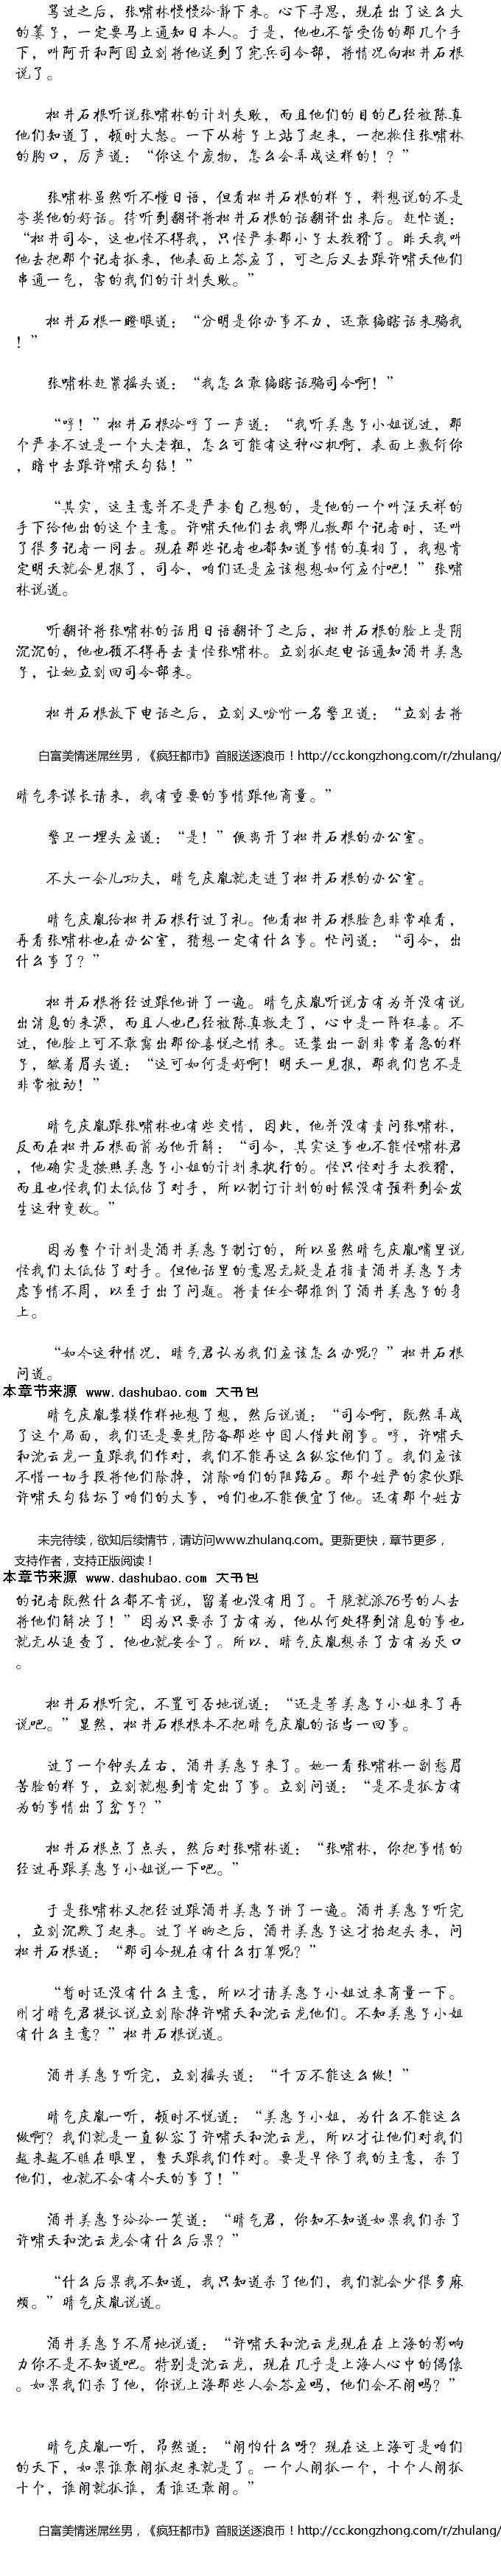 骂过之后，张啸林慢慢冷静下来。心下寻思，现在出了这么大
的篓子，一定要马上通知日本人。于是，他也不管受伤的那几个手
下，叫阿开和阿国立刻将他送到了宪兵司令部，将情况向松井石根
说了。
松井石根听说张啸林的计划失败，而且他们的目的已经被陈真
他们知道了，顿时大怒。一下从椅子上站了起来，一把揪住张啸林
的胸口，厉声道：“你这个废物，怎么会弄成这样的！？”
张啸林虽然听不懂日语，但看松井石根的样子，料想说的不是
夸奖他的好话。待听到翻译将松井石根的话翻译出来后。赶忙道：
“松井司令，这也怪不得我，只怪严奎那小子太狡猾了。昨天我叫
他去把那个记者抓来，他表面上答应了，可之后又去跟许啸天他们
串通一气，害的我们的计划失败。”
松井石根一瞪眼道：“分明是你办事不力，还敢编瞎话来骗我
！”
张啸林赶紧摇头道：“我怎么敢编瞎话骗司令啊！”
“哼！”松井石根冷哼了一声道：“我听美惠子小姐说过，那
个严奎不过是一个大老粗，怎么可能有这种心机啊，表面上敷衍你
，暗中去跟许啸天勾结！”
“其实，这主意并不是严奎自己想的，是他的一个叫汪天祥的
手下给他出的这个主意。许啸天他们去我哪儿救那个记者时，还叫
了很多记者一同去。现在那些记者也都知道事情的真相了，我想肯
定明天就会见报了，司令，咱们还是应该想想如何应付吧！”张啸
林说道。
听翻译将张啸林的话用日语翻译了之后，松井石根的脸上是阴
沉沉的，他也顾不得再去责怪张啸林。立刻抓起电话通知酒井美惠
子，让她立刻回司令部来。
松井石根放下电话之后，立刻又吩咐一名警卫道：“立刻去将
白富美情迷屌丝男，《疯狂都市》首服送逐浪币！http://cc.kongzhong.com/r/zhulang/
晴气参谋长请来，我有重要的事情跟他商量。”
警卫一埋头应道：“是！”便离开了松井石根的办公室。
不大一会儿功夫，晴气庆胤就走进了松井石根的办公室。
晴气庆胤给松井石根行过了礼。他看松井石根脸色非常难看，
再看张啸林也在办公室，猜想一定有什么事。忙问道：“司令，出
什么事了？”
松井石根将经过跟他讲了一遍。晴气庆胤听说方有为并没有说
出消息的来源，而且人也已经被陈真救走了，心中是一阵狂喜。不
过，他脸上可不敢露出那份喜悦之情来。还装出一副非常着急的样
子，皱着眉头道：“这可如何是好啊！明天一见报，那我们岂不是
非常被动！”
晴气庆胤跟张啸林也有些交情，因此，他并没有责问张啸林，
反而在松井石根面前为他开解：“司令，其实这事也不能怪啸林君
，他确实是按照美惠子小姐的计划来执行的。怪只怪对手太狡猾，
而且也怪我们太低估了对手，所以制订计划的时候没有预料到会发
生这种变故。”
因为整个计划是酒井美惠子制订的，所以虽然晴气庆胤嘴里说
怪我们太低估了对手。但他话里的意思无疑是在指责酒井美惠子考
虑事情不周，以至于出了问题。将责任全部推倒了酒井美惠子的身
上。
“如今这种情况，晴气君认为我们应该怎么办呢？”松井石根
问道。
本章节来源 www.dashubao.com 大书包
晴气庆胤装模作样地想了想，然后说道：“司令啊，既然弄成
了这个局面，我们还是要先防备那些中国人借此闹事。哼，许啸天
和沈云龙一直跟我们作对，我们不能再这么纵容他们了。我们应该
不惜一切手段将他们除掉，消除咱们的阻路石。那个姓严的家伙跟
许啸天勾结坏了咱们的大事，咱们也不能便宜了他。还有那个姓方
未完待续，欲知后续情节，请访问www.zhulang.com。更新更快，章节更多，
支持作者，支持正版阅读！
本章节来源 www.dashubao.com 大书包
的记者既然什么都不肯说，留着也没有用了。干脆就派76号的人去
将他们解决了！”因为只要杀了方有为，他从何处得到消息的事也
就无从追查了，他也就安全了。所以，晴气庆胤想杀了方有为灭口
。
松井石根听完，不置可否地说道：“还是等美惠子小姐来了再
说吧。”显然，松井石根根本不把晴气庆胤的话当一回事。
过了一个钟头左右，酒井美惠子来了。她一看张啸林一副愁眉
苦脸的样子，立刻就想到肯定出了事。立刻问道：“是不是抓方有
为的事情出了岔子？”
松井石根点了点头，然后对张啸林道：“张啸林，你把事情的
经过再跟美惠子小姐说一下吧。”
于是张啸林又把经过跟酒井美惠子讲了一遍。酒井美惠子听完
，立刻沉默了起来。过了半晌之后，酒井美惠子这才抬起头来，问
松井石根道：“那司令现在有什么打算呢？”
“暂时还没有什么主意，所以才请美惠子小姐过来商量一下。
刚才晴气君提议说立刻除掉许啸天和沈云龙他们。不知美惠子小姐
有什么主意？”松井石根说道。
酒井美惠子听完，立刻摇头道：“千万不能这么做！”
晴气庆胤一听，顿时不悦道：“美惠子小姐，为什么不能这么
做啊？我们就是一直纵容了许啸天和沈云龙，所以才让他们对我们
越来越不瞧在眼里，整天跟我们作对。要是早依了我的主意，杀了
他们，也就不会有今天的事了！”
酒井美惠子冷冷一笑道：“晴气君，你知不知道如果我们杀了
许啸天和沈云龙会有什么后果？”
“什么后果我不知道，我只知道杀了他们，我们就会少很多麻
烦。”晴气庆胤说道。
酒井美惠子不屑地说道：“许啸天和沈云龙现在在上海的影响
力你不是不知道吧。特别是沈云龙，现在几乎是上海人心中的偶像
。如果我们杀了他，你说上海那些人会答应吗，他们会不闹吗？”
晴气庆胤一听，昂然道：“闹怕什么呀？现在这上海可是咱们
的天下，如果谁敢闹抓起来就是了。一个人闹抓一个，十个人闹抓
十个，谁闹就抓谁，看谁还敢闹。”
白富美情迷屌丝男，《疯狂都市》首服送逐浪币！http://cc.kongzhong.com/r/zhulang/